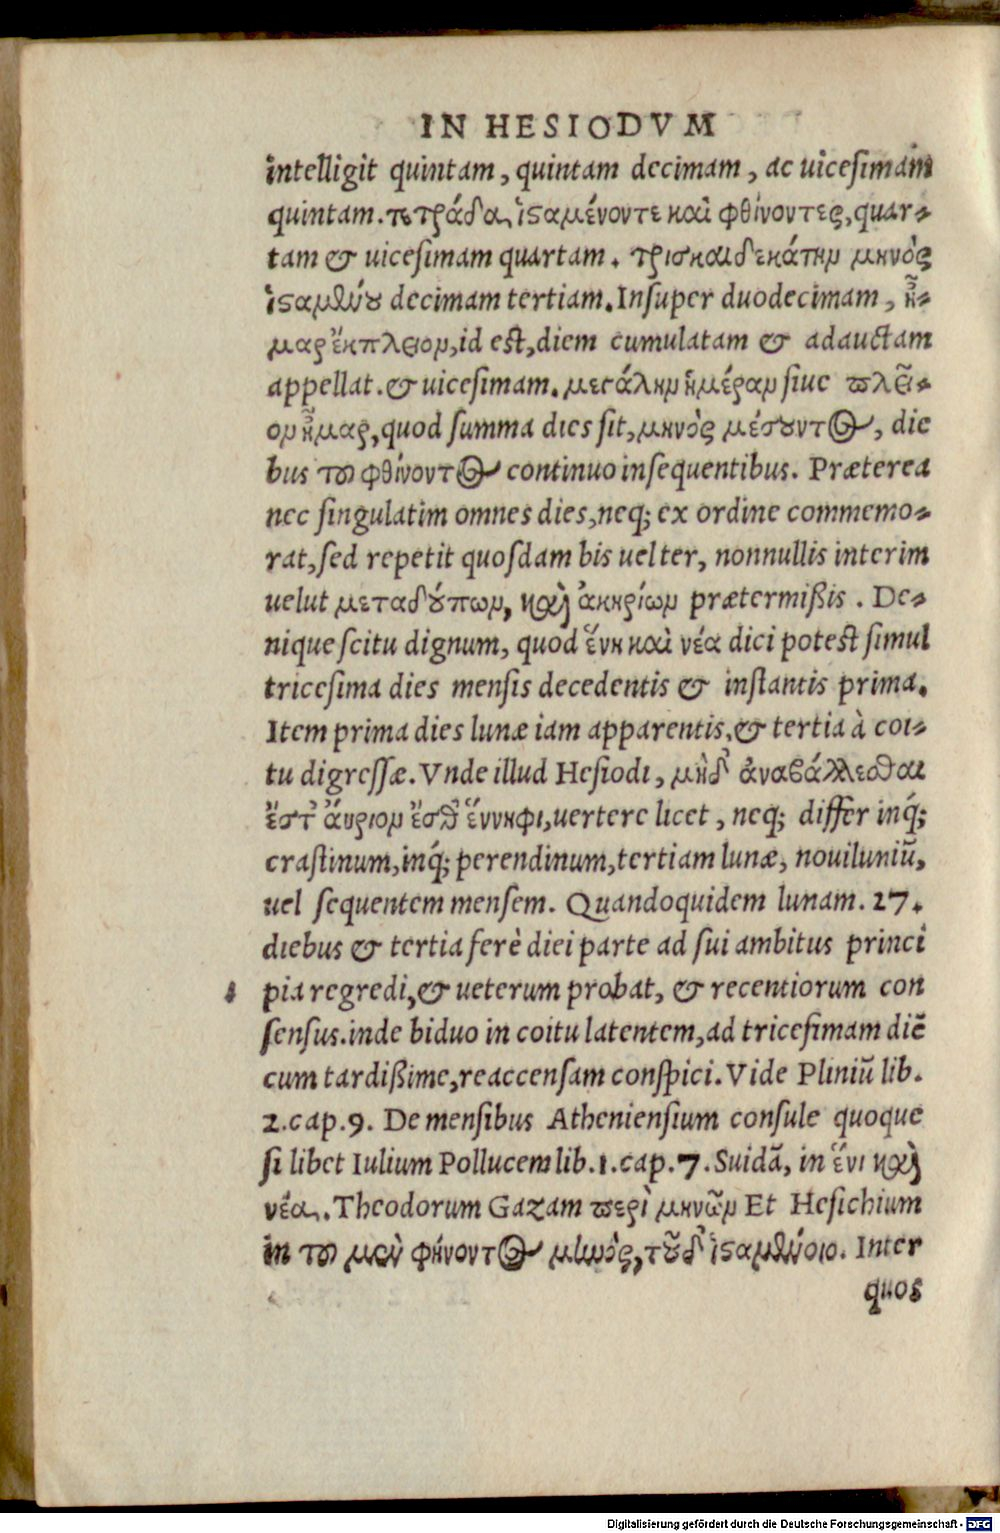 IN HESIODVM
intelligit quintam, quintam decimam, ac uicesimam
quintam. τετράδα, ἱσαμένοντε καὶ φθίνοντες, quar-
tam & uicesimam quartam. τρισκαιδεκάτην μηνὸς
ἱσαμένου decimam tertiam. Insuper duodecimam, ἦ-
μαρ ἔκπλειον, id est, diem cumulatam & adauctam
appellat. & uicesimam. μεγάλην ἡμέραν siue πλεῖ-
ον ἦμαρ, quod summa dies sit, μηνὸς μέσουντος, die
bus τοῦ φθίνοντος continuo insequentibus. Præterea
nec singulatim omnes dies, neq; ex ordine commemo-
rat, sed repetit quosdam bis uel ter, nonnullis interim
uelut μεταδούπων, καὶ ἀκηρίων prætermißis. De-
nique scitu dignum, quod ἕνη καὶ νέα dici potest simul
tricesima dies mensis decedentis & instantis prima.
Item prima dies lunæ iam apparentis, & tertia à coi-
tu digressæ. Vnde illud Hesiodi, μὴδ' ἀναβάλλεσθαι
ἔστ' ἄυριον ἔσθ' ἕννηφι, uertere licet, neq; differ inq́;
crastinum, inq́; perendinum, tertiam lunæ, nouiluniũ,
uel sequentem mensem. Quandoquidem lunam. 27.
diebus & tertia ferè diei parte ad sui ambitus princi
pia regredi, & ueterum probat, & recentiorum con
sensus. inde biduo in coitu latentem, ad tricesimam diẽ
cum tardißime, reaccensam conspici. Vide Pliniũ lib.
2. cap. 9. De mensibus Atheniensium consule quoque
si libet Iulium Pollucem lib. 1. cap. 7. Suidã, in ἕνι καὶ
νέα. Theodorum Gazam περὶ μηνῶν Et Hesichium
in τοῦ μὲν φήνοντος μηνὸς, τοῦ δ' ἱσαμένοιο. Inter
quos
Digitalisierung gefördert durch die Deutsche Forschungsgemeinschaft - DFG